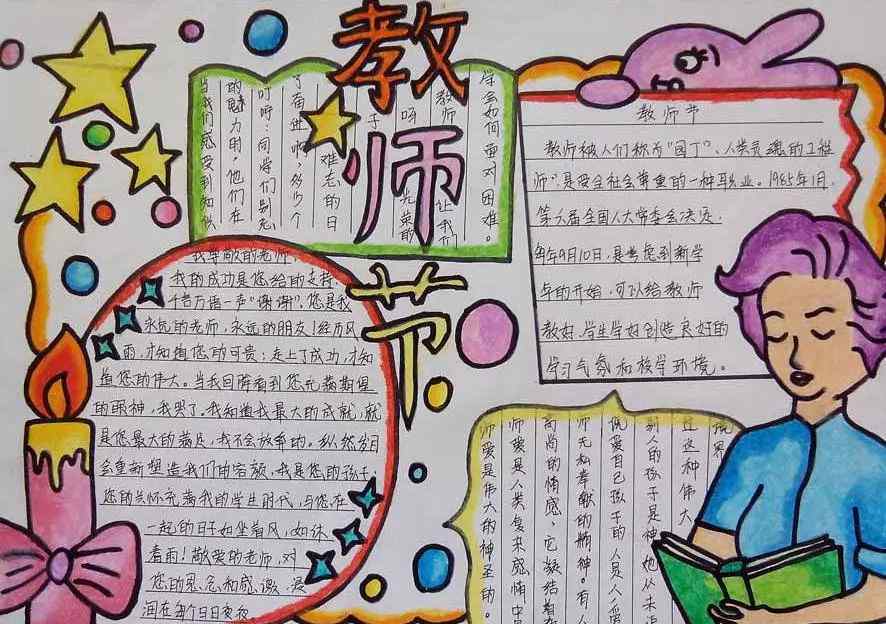 教师节
学会如何面对困难。
教师
让我们
呀
光荣的
子
难忘的日
了奋进啊,多少个
叮咛:同学们别忘
的魅力时,他们在
当我们感受到知识
教师节
教师被人们称为“园丁”、人类灵魂的工程
师”,是受全社会尊重的一种职业。1985年1月,
第六届全国人大常委会决定,
每年9月10日,是考虑到新学
年的开始,可以给教师
教好、学生学好创造良好的
学习气氛和校学环境。
我尊敬的老师
我的成功是您给的支持,
千言万语一声“谢谢”,您是我
永远的老师,永远的朋友!经历风
雨,才知道您的可贵;走上了成功,才知
道您的伟大。当我回眸看到您充满期望
的眼神,我哭了。我知道我最大的成就,就
是您最大的满足,我不会放弃的。纵然岁月
会重新塑造我们的容颜,我是您的孩子;
您的关怀充满我的学生时代,与您在
一起的日子如坐着风,如沐
着雨!敬爱的老师,对
您的思念和感激,浸
润在每个日日夜夜
境界
过这种伟大
别人的孩子是神,她从未
低爱自己孩子的人
师无私奉献的精神。有人
高尚的情感,它凝结着
师爱是人类复杂感情中
师爱是伟大的神圣的。